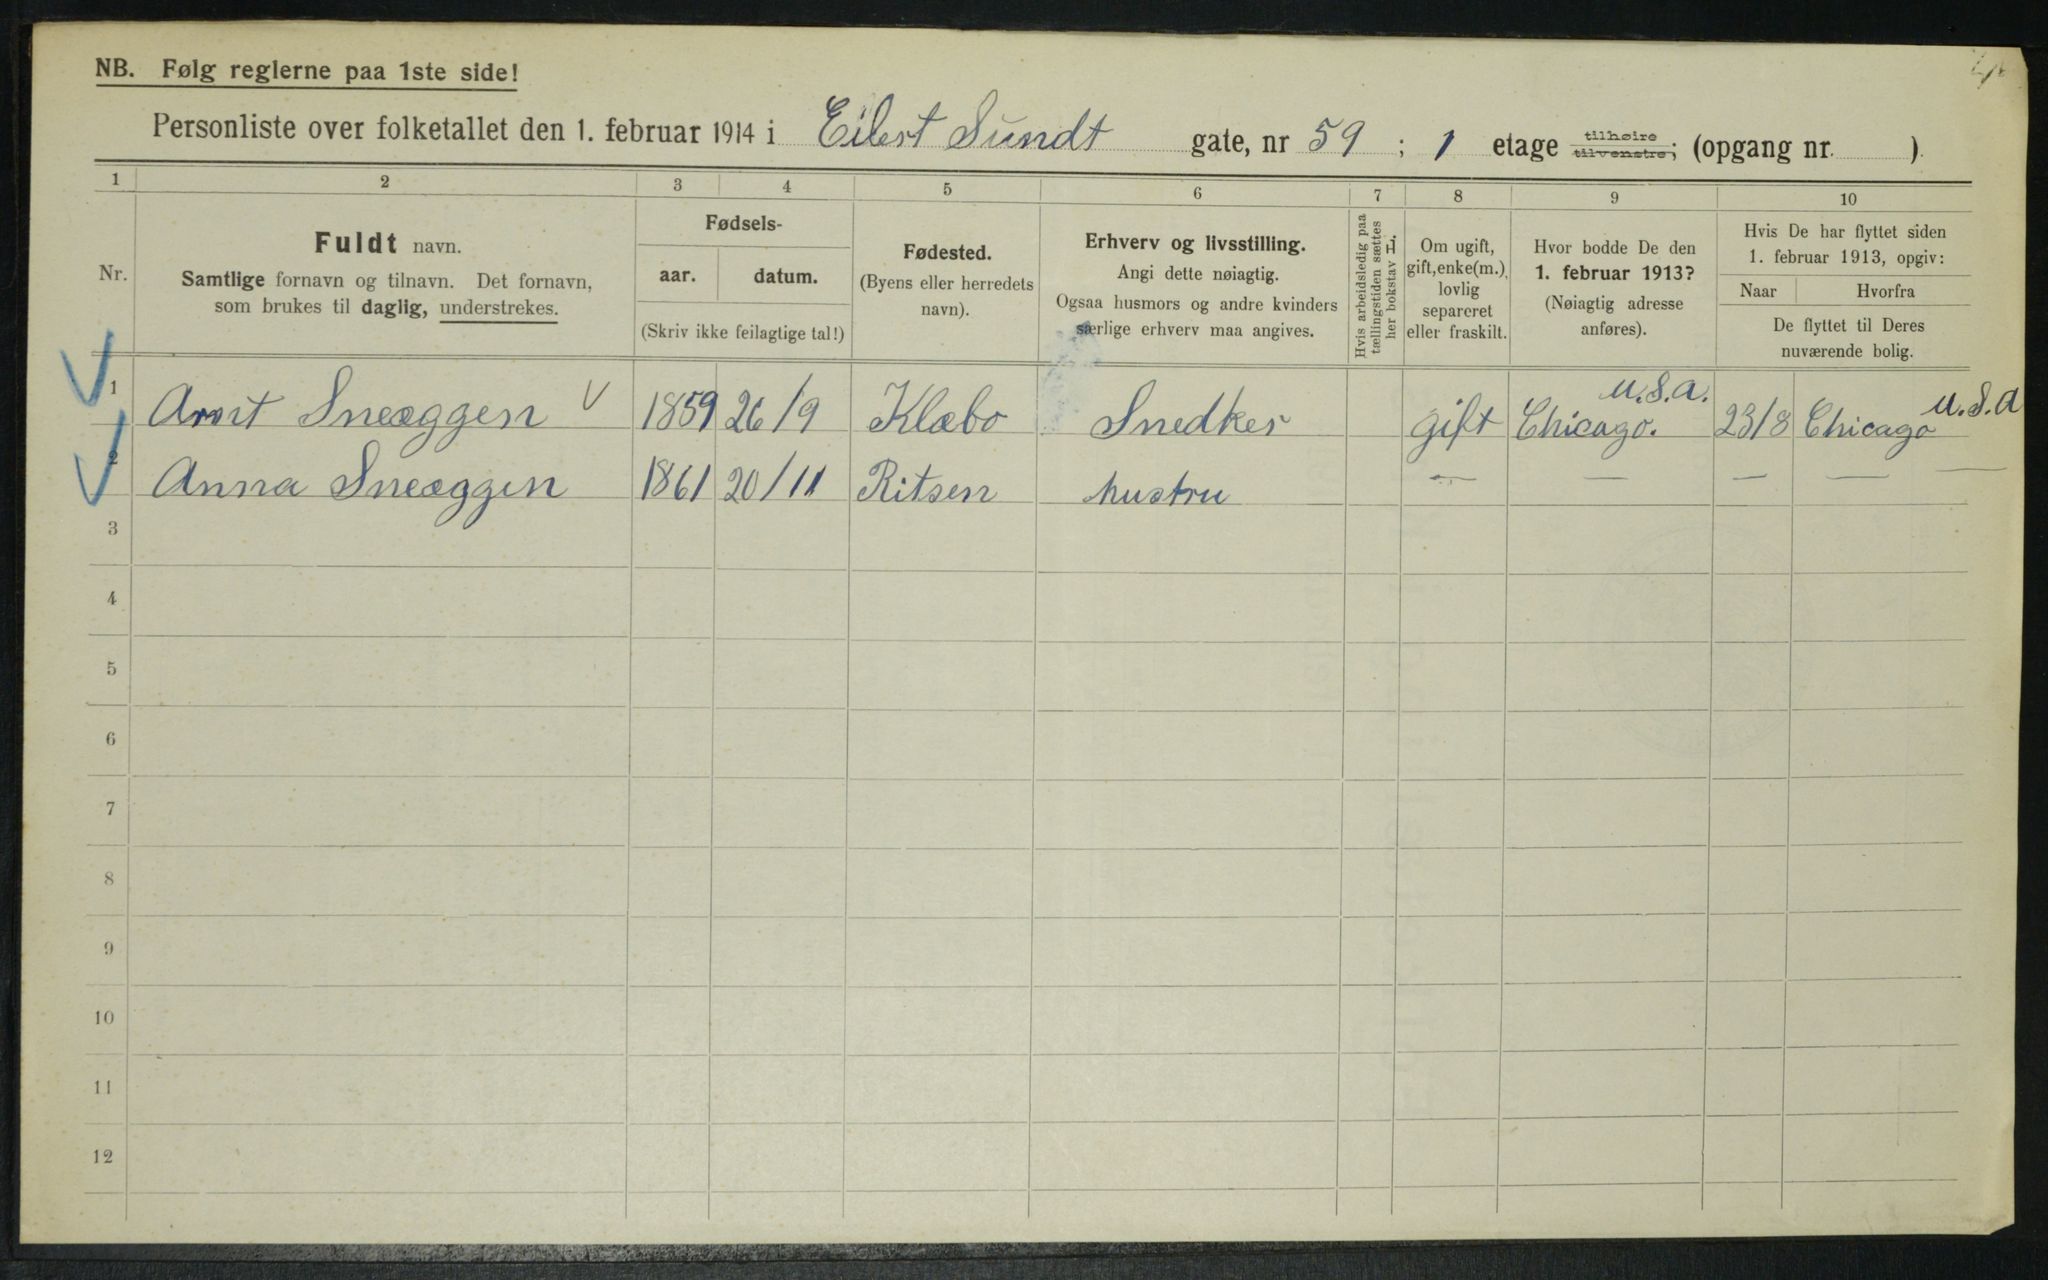 NB. Følg reglerne paa 1ste side!
Personliste over folketallet den 1. februar 1914 i Eilert Sundt gate, nr 59 ; 1 etage tilhøire tilvenstre; (opgang nr. ).
1 2 3 4 5 6 7 8 9 10
Nr.
Fuldt navn.
Samtlige fornavn og tilnavn. Det fornavn,
som brukes til daglig, understrekes.
Fødsels-
aar. datum.
(Skriv ikke feilagtige tal!)
Fødested.
(Byens eller herredets
navn).
Erhverv og livsstilling.
Angi dette nøiagtig.
Ogsaa husmors og andre kvinders
særlige erhverv maa angives.
Hvis arbeidsledig paa
tællingstiden sættes
her bokstav L.
Om ugift,
gift, enke(m.),
lovlig
separeret
eller fraskilt.
Hvor bodde De den
1. februar 1913?
(Nøiagtig adresse
anføres).
Hvis De har flyttet siden
1. februar 1913, opgiv:
Naar Hvorfra
De flyttet til Deres
nuværende bolig.
1 Arnt Sneæggen 1859 26/9 Klæbo Snedker gift Chicago. U.S.A. 23/8 Chicago U.S.A
2 Anna Sneæggen 1861 20/11 Ritsen hustru — — — — —
3
4
5
6
7
8
9
10
11
12